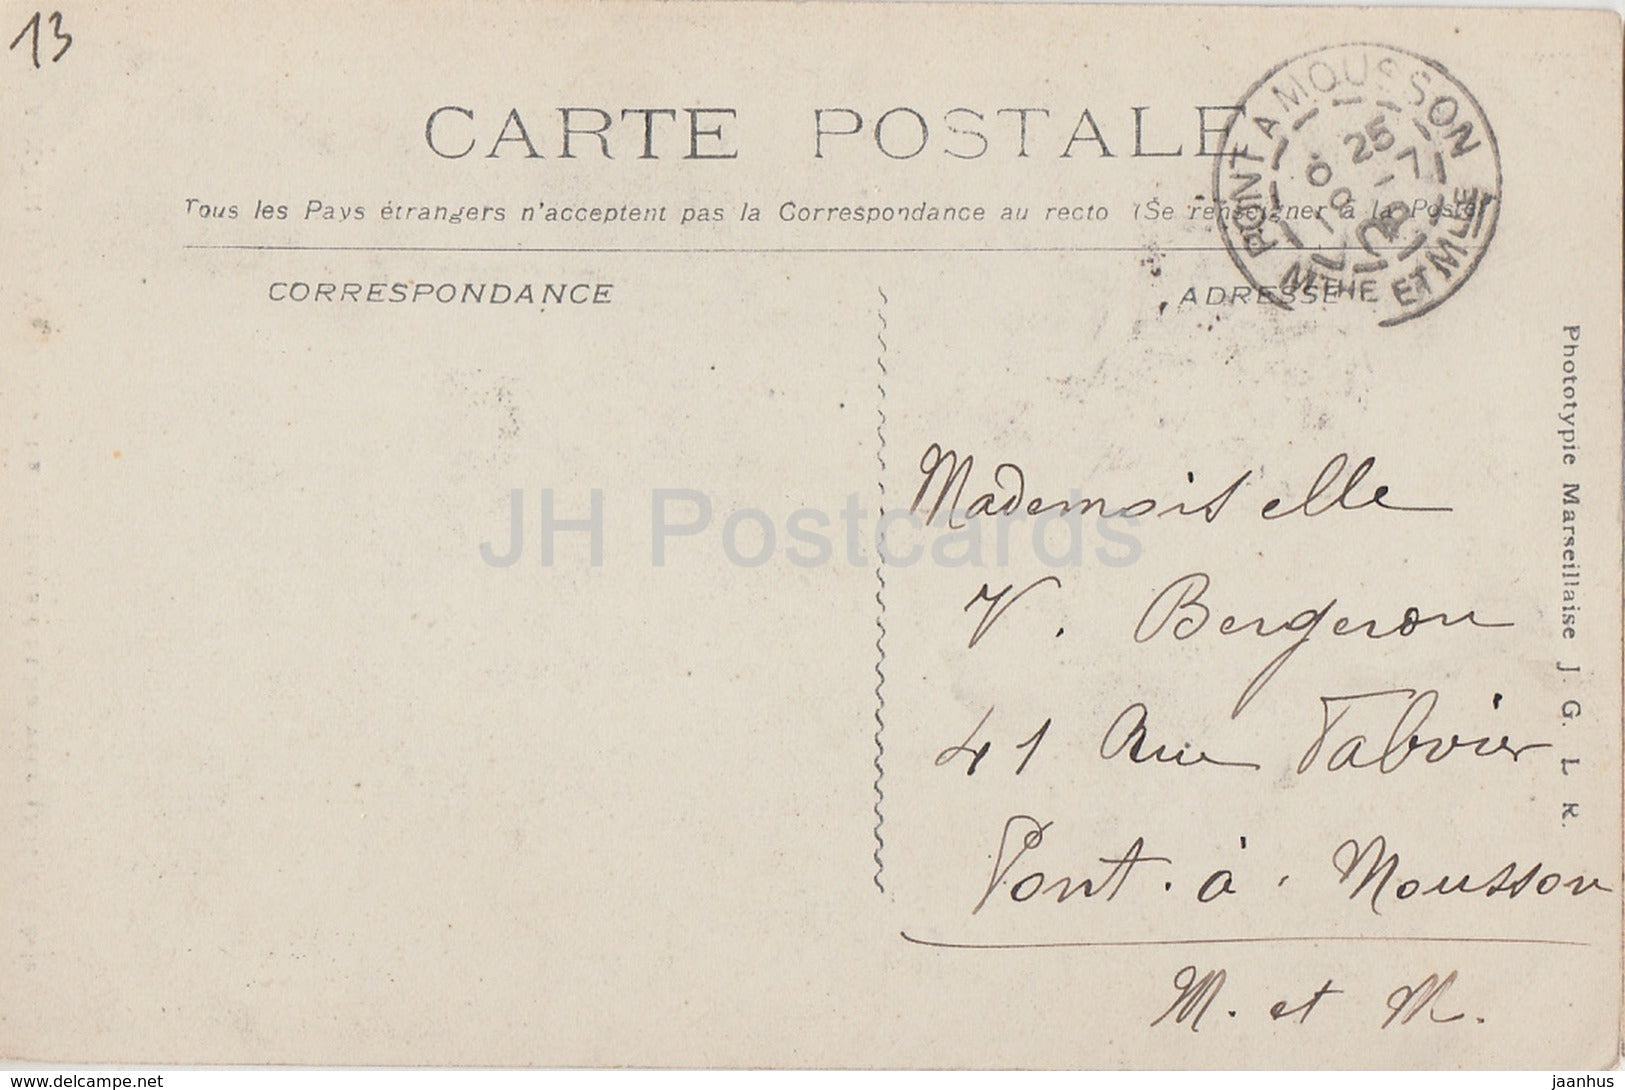 13
CARTE POSTALE
Tous les Pays étrangers n'acceptent pas la Correspondance au recto (Se renseigner à la Poste)
CORRESPONDANCE
ADRESSE
PONT A MOUSSON
25
7
MTHE ET MLLE
Mademoiselle
V. Bergeron
41 Rue Fabvier
Pont-à-Mousson
M. et M.
Phototypie Marseillaise J. G. L. K.
JH Postcards
www.delcampe.net
jaanhus